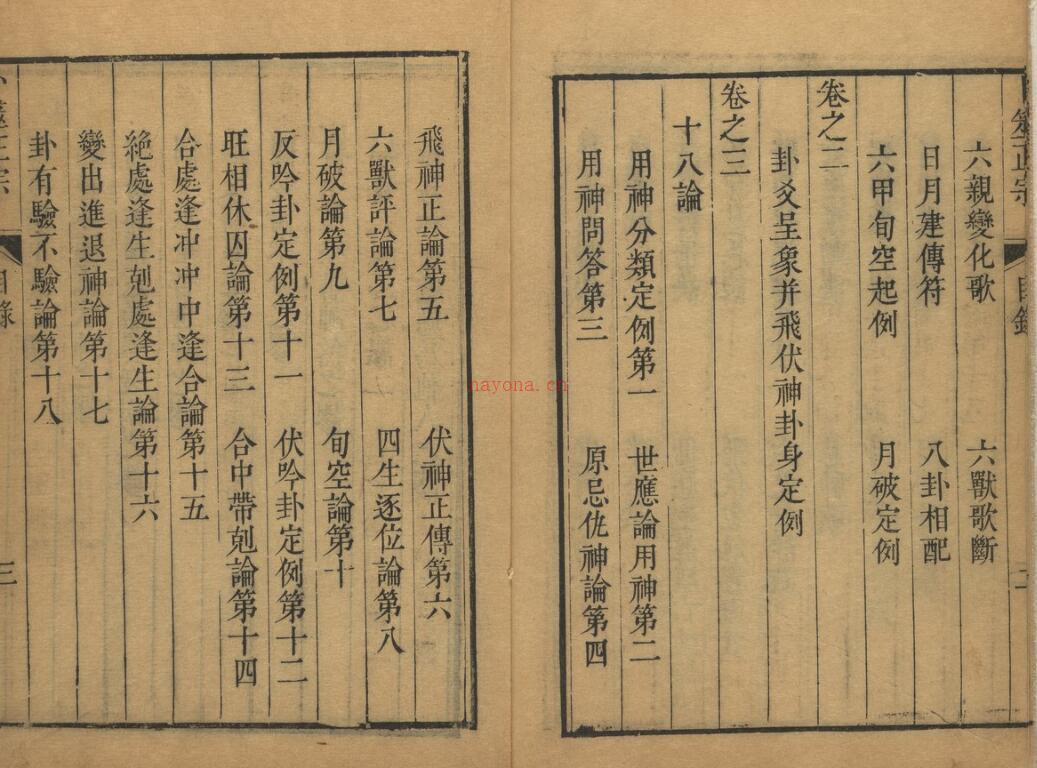 筮正宗 目錄 二
六親變化歌 六獸歌斷
日月建傳符 八卦相配
六甲旬空起例 月破定例
卷之二
卦爻呈象并飛伏神卦身定例
卷之三
十八論
用神分類定例第一 世應論用神第二
用神問答第三 原忌仇神論第四
飛神正論第五 伏神正傳第六
六獸評論第七 四生逐位論第八
月破論第九 旬空論第十
反吟卦定例第十一 伏吟卦定例第十二
旺相休囚論第十三 合中帶剋論第十四
合處逢冲冲中逢合論第十五
絶處逢生剋處逢生論第十六
變出進退神論第十七
卦有驗不驗論第十八
正宗 目錄 三
nayona.cn